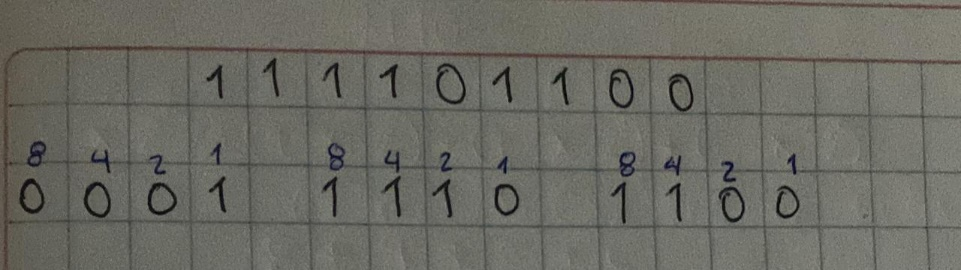 1 1 1 1 0 1 1 0 0
8 4 2 1 8 4 2 1 8 4 2 1
0 0 0 1 1 1 1 0 1 1 0 0